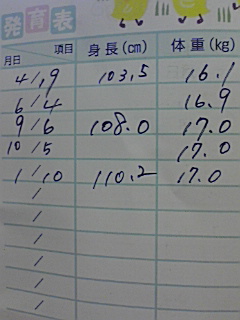 発育表
月日 項目 身長(cm) 体重(kg)
4/9 103.5 16.1
6/4 16.9
9/6 108.0 17.0
10/5 17.0
1/10 110.2 17.0
/
/
/
/
/
/